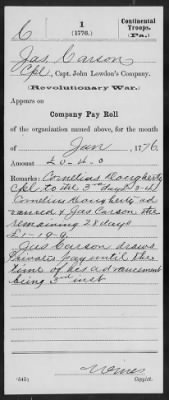 C
1
(1776.)
Continental
Troops.
(Pa.)
Jas Carson
Cpl, Capt. John Lowdon's Company.
(Revolutionary War.)
Appears on
Company Pay Roll
of the organization named above, for the month
of Jan, 1776
Amount £0-4-0
Remarks: Cornelius Dougherty
Cpl to the 3rd days
Cornelius Dougherty ad
vanced & Jas Carson the
remaining 28 days
£1-19-9
Jas Carson draws
Privates pay until the
time of his advancement
being 3rd inst
(545)
Copyist.